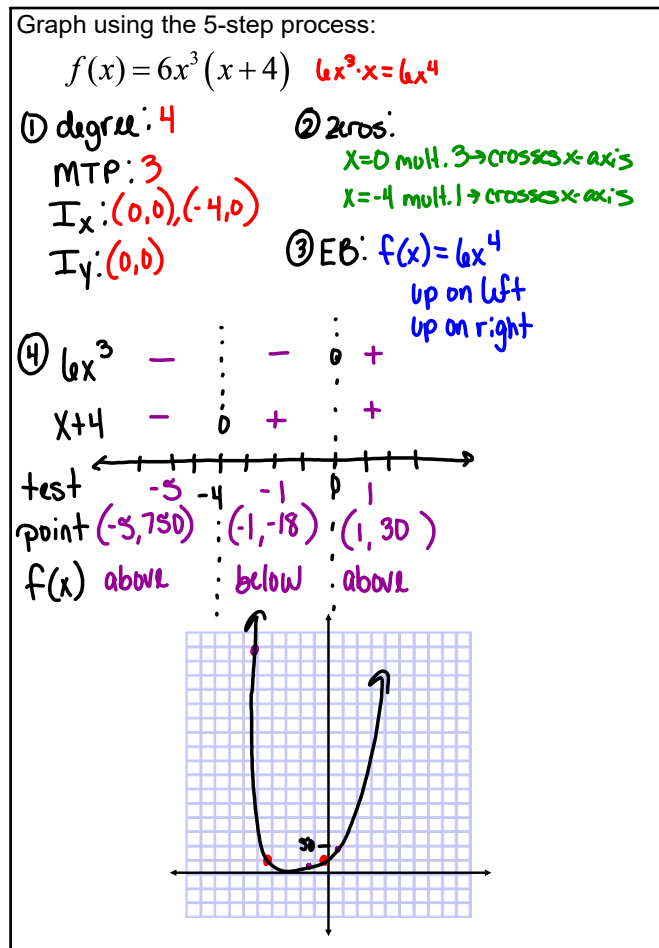 Graph using the 5-step process:
f(x) = 6x³(x+4) 6x³·x=6x⁴
① degree: 4
MTP: 3
Iₓ: (0,0), (-4,0)
Iy: (0,0)
② zeros:
x=0 mult. 3→crosses x-axis
x=-4 mult. 1→crosses x-axis
③ EB: f(x)=6x⁴
up on left
up on right
④ 6x³ − − 0 +
x+4 − 0 + +
test -5 -4 -1 0 1
point (-5,750) (-1,-18) (1, 30)
f(x) above below above
50